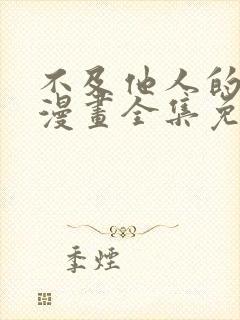 不及他人的
漫畫全集免
季煙